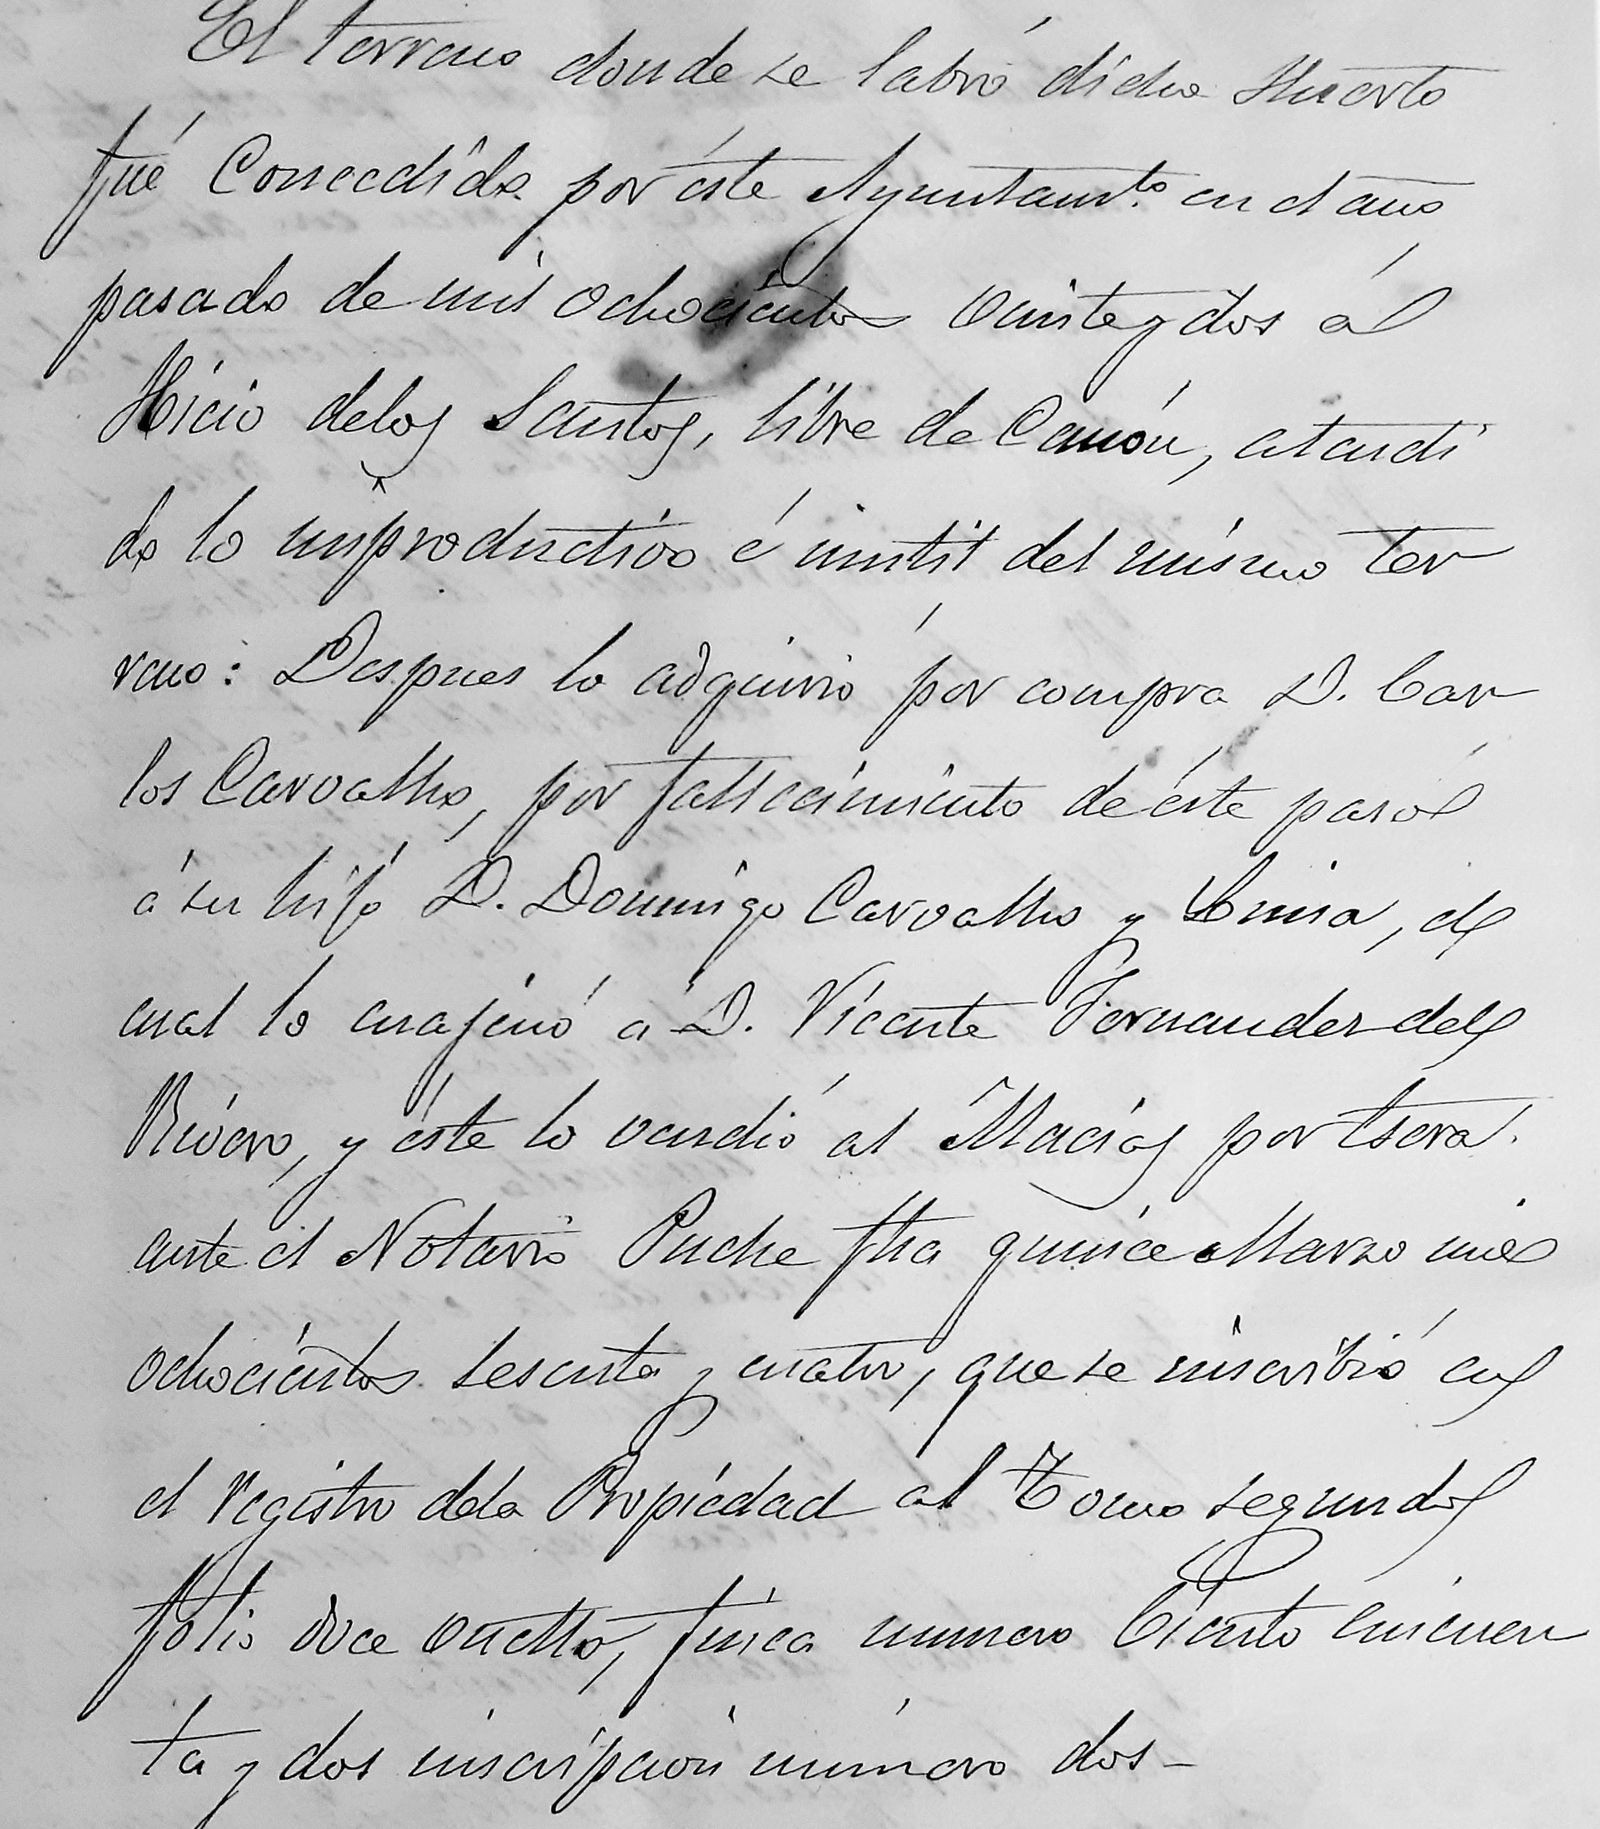 El terreno donde se labró dicho Huerto
fué Concedido por éste Ayuntamto. en el año
pasado de mil ochocientos veinte y dos ál
Hicio delos Santos, libre de Canón, atendi
do lo improductivo é inutil del mismo ter
reno: Despues lo adquirió por compra D. Car
los Carvallo, por fallecimiento de éste pasó
á su hijo D. Domingo Carvallo y Luisa, el
cual lo enajenó á D. Vicente Fernandez del
Rivero, y éste lo vendió al Macias por Escra.
ante el Notario Puche fha quince Marzo mil
ochocientos sesenta y cuatro, que se inscribió en
el registro dela Propiedad al Tomo segundo
folio doce vuelto, finca numero Ciento cincuen
ta y dos inscripción número dos-